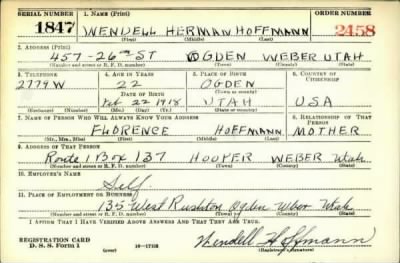 SERIAL NUMBER 1. NAME (Print) ORDER NUMBER
1847 WENDELL HERMAN HOFFMANN 2458
(First) (Middle) (Last)
2. ADDRESS (Print)
457-26th ST OGDEN WEBER UTAH
(Number and street or R. F. D. number) (Town) (County) (State)
3. TELEPHONE 4. AGE IN YEARS 5. PLACE OF BIRTH 6. COUNTRY OF CITIZENSHIP
2779W 22 OGDEN
DATE OF BIRTH (Town or county)
Feb 22 1918 UTAH USA
(Exchange) (Number) (Mo.) (Day) (Yr.) (State or country)
7. NAME OF PERSON WHO WILL ALWAYS KNOW YOUR ADDRESS 8. RELATIONSHIP OF THAT PERSON
FLORENCE HOFFMANN MOTHER
(Mr., Mrs., Miss) (First) (Middle) (Last)
9. ADDRESS OF THAT PERSON
Route 1 Box 137 HOOPER WEBER Utah
(Number and street or R. F. D. number) (Town) (County) (State)
10. EMPLOYER'S NAME
Self
11. PLACE OF EMPLOYMENT OR BUSINESS
135 West Rushton Ogden Weber Utah
(Number and street or R. F. D. number) (Town) (County) (State)
I AFFIRM THAT I HAVE VERIFIED ABOVE ANSWERS AND THAT THEY ARE TRUE.
REGISTRATION CARD
D. S. S. Form 1 (over) 16-17105 Wendell H Hoffmann
(Registrant's signature)